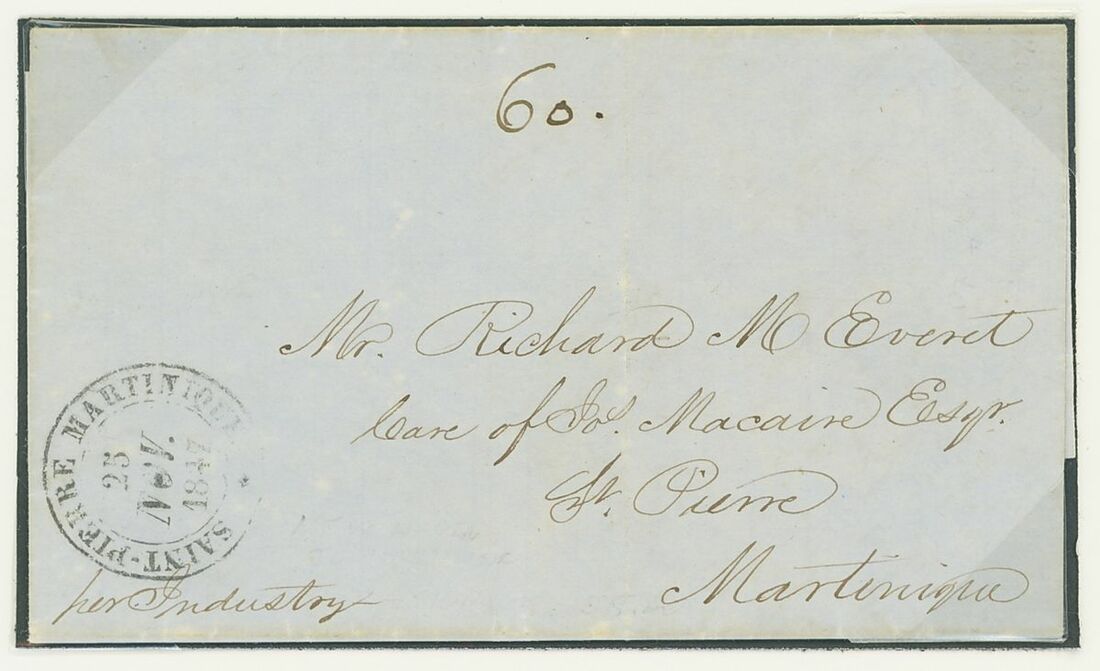 60.
Mr. Richard M Everet
Care of Jos. Macaire Esqr.
St. Pierre
Martinique
SAINT-PIERRE MARTINIQUE
25
Nov.
1847
per Industry